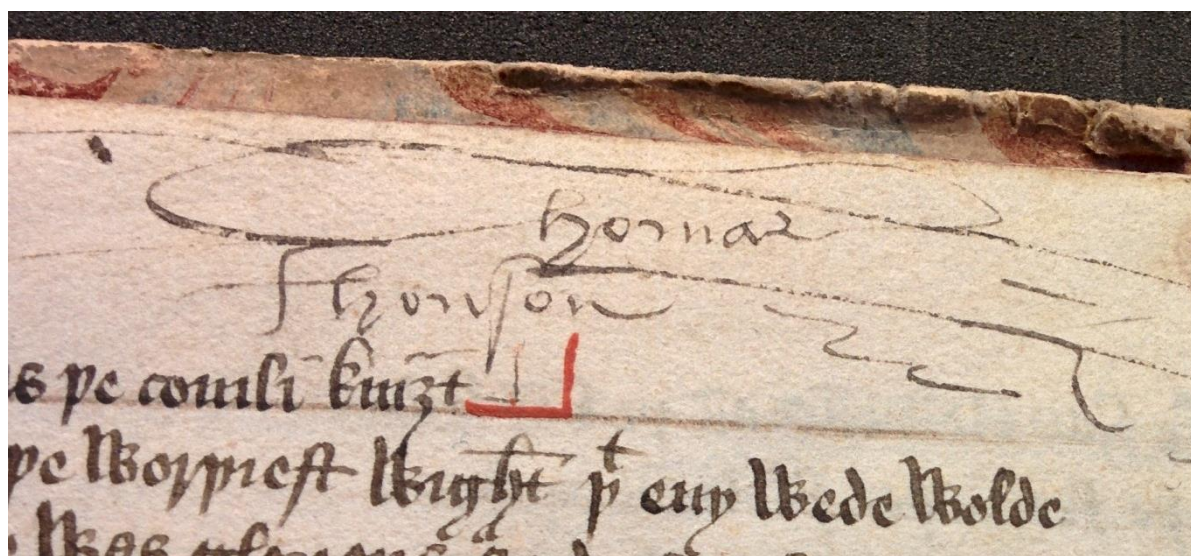 Thomas
Thonson
s þe comli kniȝt
þe worþiest wight þt eny wede wolde
was